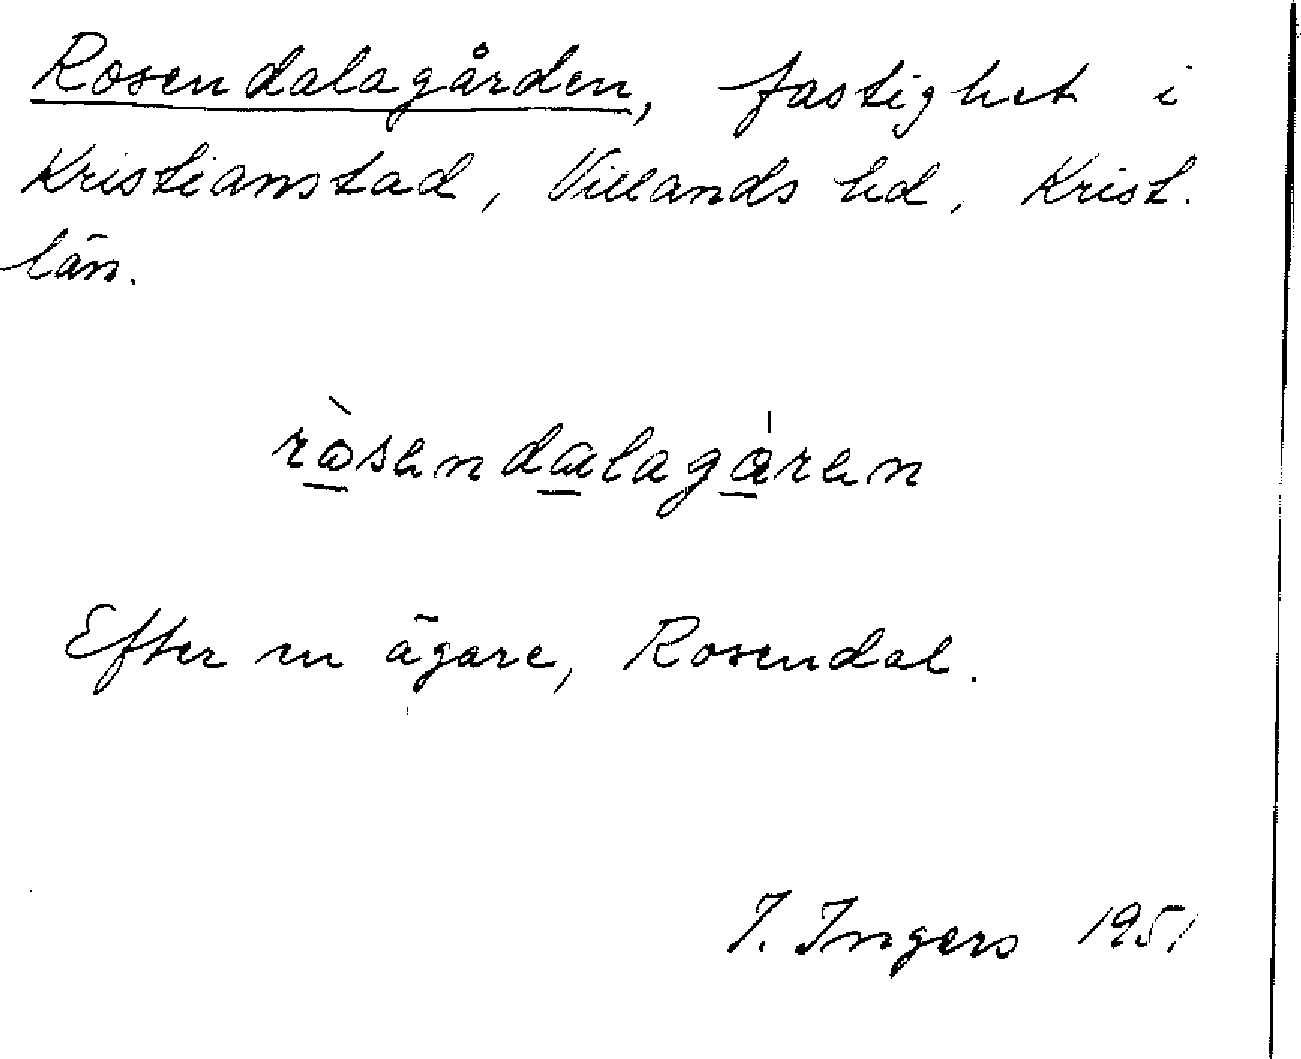 Rosendalagården, fastighet i
Kristianstad, Villands hd, Krist.
län.
ròsendalagáren
Efter en ägare, Rosendal.
I. Ingers 1951